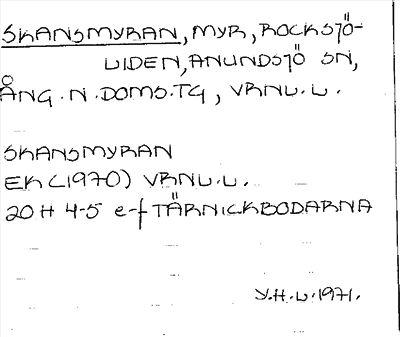 SKANSMYRAN, MYR, ROCKSJÖ-
LIDEN, ANUNDSJÖ SN,
ÅNG. N. DOMS. TG, VRNL. L.
SKANSMYRAN
EK (1970) VRNL. L.
20 H 4-5 e-f TÄRNICKBODARNA
Y.H. L. 1971.